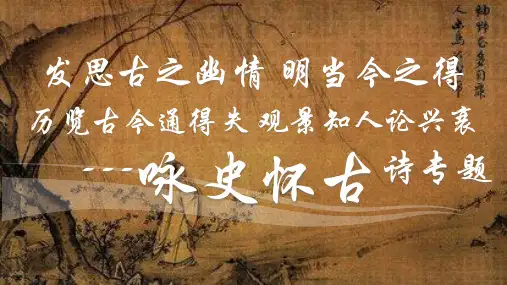 发思古之幽情 明当今之得
历览古今通得失 观景知人论兴衰
---咏史怀古诗专题